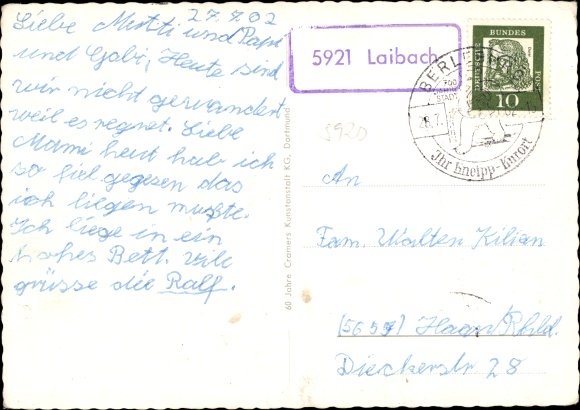 27.7.62
Liebe Mutti und Papi
und Gabi, Heute sind
wir nicht gewandert
weil es regnet. Liebe
Mami heut hab ich
so fiel gegesen das
ich liegen mußte.
Ich liege in ein
hohes Bett. viele
grüsse die Ralf.
60 Jahre Cramers Kunstanstalt KG, Dortmund
5921 Laibach
5920
BUNDES
DEUTSCHE
POST
10
BERLEBURG
700
STADT
28.7.
62
Ihr Kneipp-Kurort
An
Fam. Walter Kilian
(5657) Haan/Rhld.
Dieckerstr 28